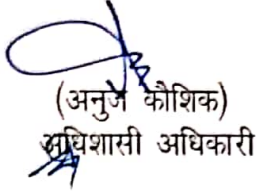 (अनुज कौशिक)
अधिशासी अधिकारी